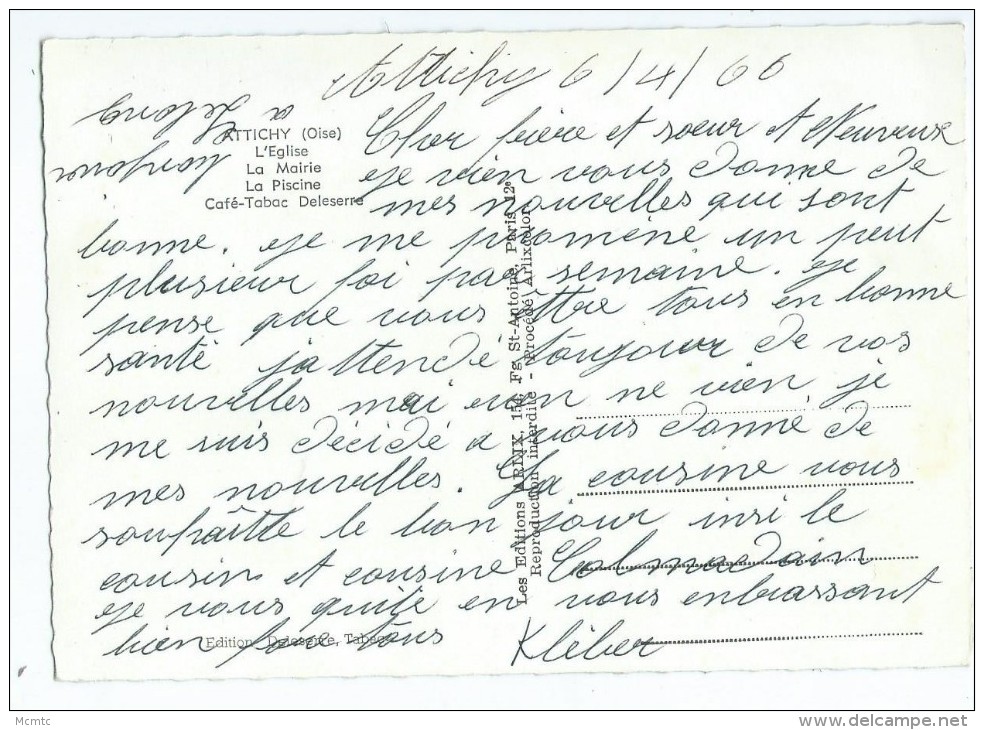 Attichy 6/4/66
ATTICHY (Oise)
L'Eglise
La Mairie
La Piscine
Café-Tabac Deleserre
Cher frère et sœur et Neuveux
je vien vous donne de
mes nouvelles qui sont
bonne. je me promène un peut
plusieur foi par semaine. je
pense que vous ettre tous en bonne
santé j'attende toujour de vos
nouvelles mai rien ne vien, je
me suis décidé a vous donne de
mes nouvelles. La cousine vous
souhaîtte le bon jour insi le
cousin et cousine
je vous quite en vous enbrassant
bien fore tous
Kléber
Les Editions ARLIX, 154, Fg. St-Antoine, Paris 12e
Reproduction interdite - Procédé Arlixcolor
Edition Deleserre, Tabacs
Mcmtc
www.delcampe.net